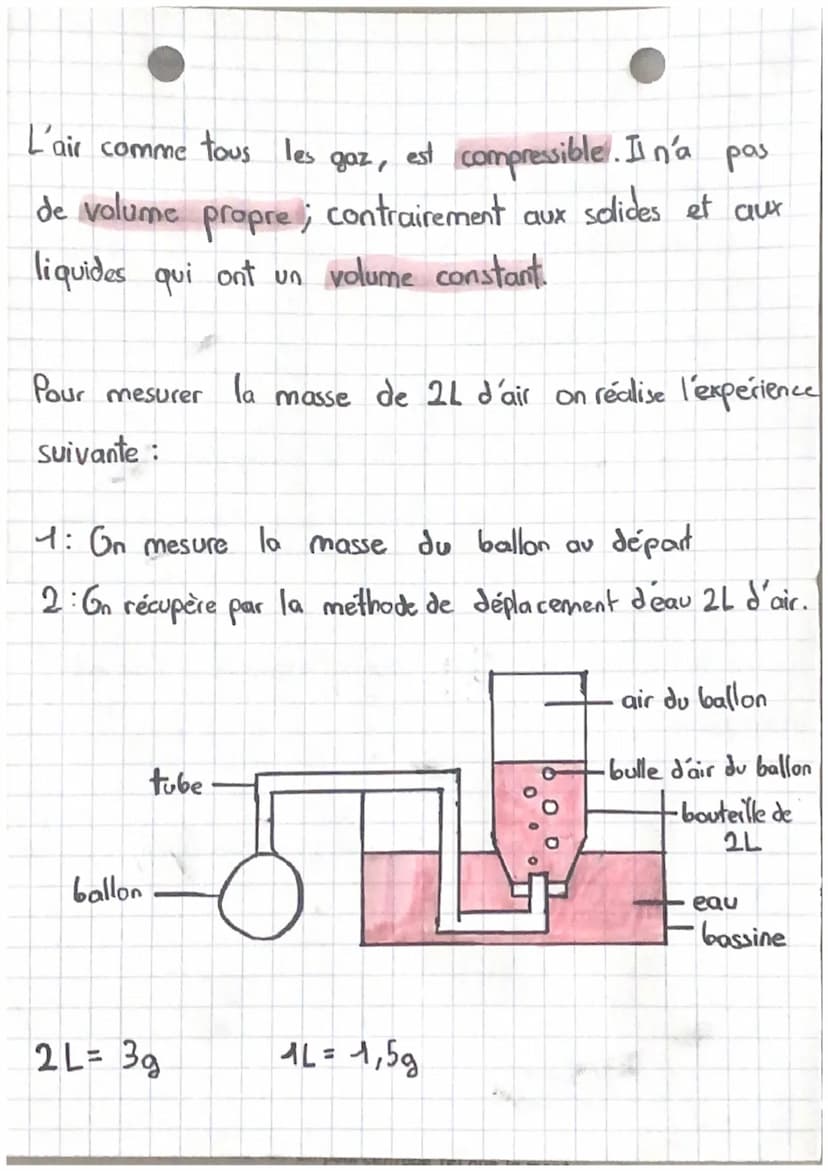 L'air comme tous les gaz, est compressible. Il n'a pas
de volume propre ; contrairement aux solides et aux
liquides qui ont un volume constant.
Pour mesurer la masse de 2L d'air on réalise l'expérience
suivante :
1: On mesure la masse du ballon au départ
2: On récupère par la méthode de déplacement d'eau 2L d'air.
air du ballon
tube
bulle d'air du ballon
bouteille de
2L
ballon
eau
bassine
2L = 3g 1L = 1,5g